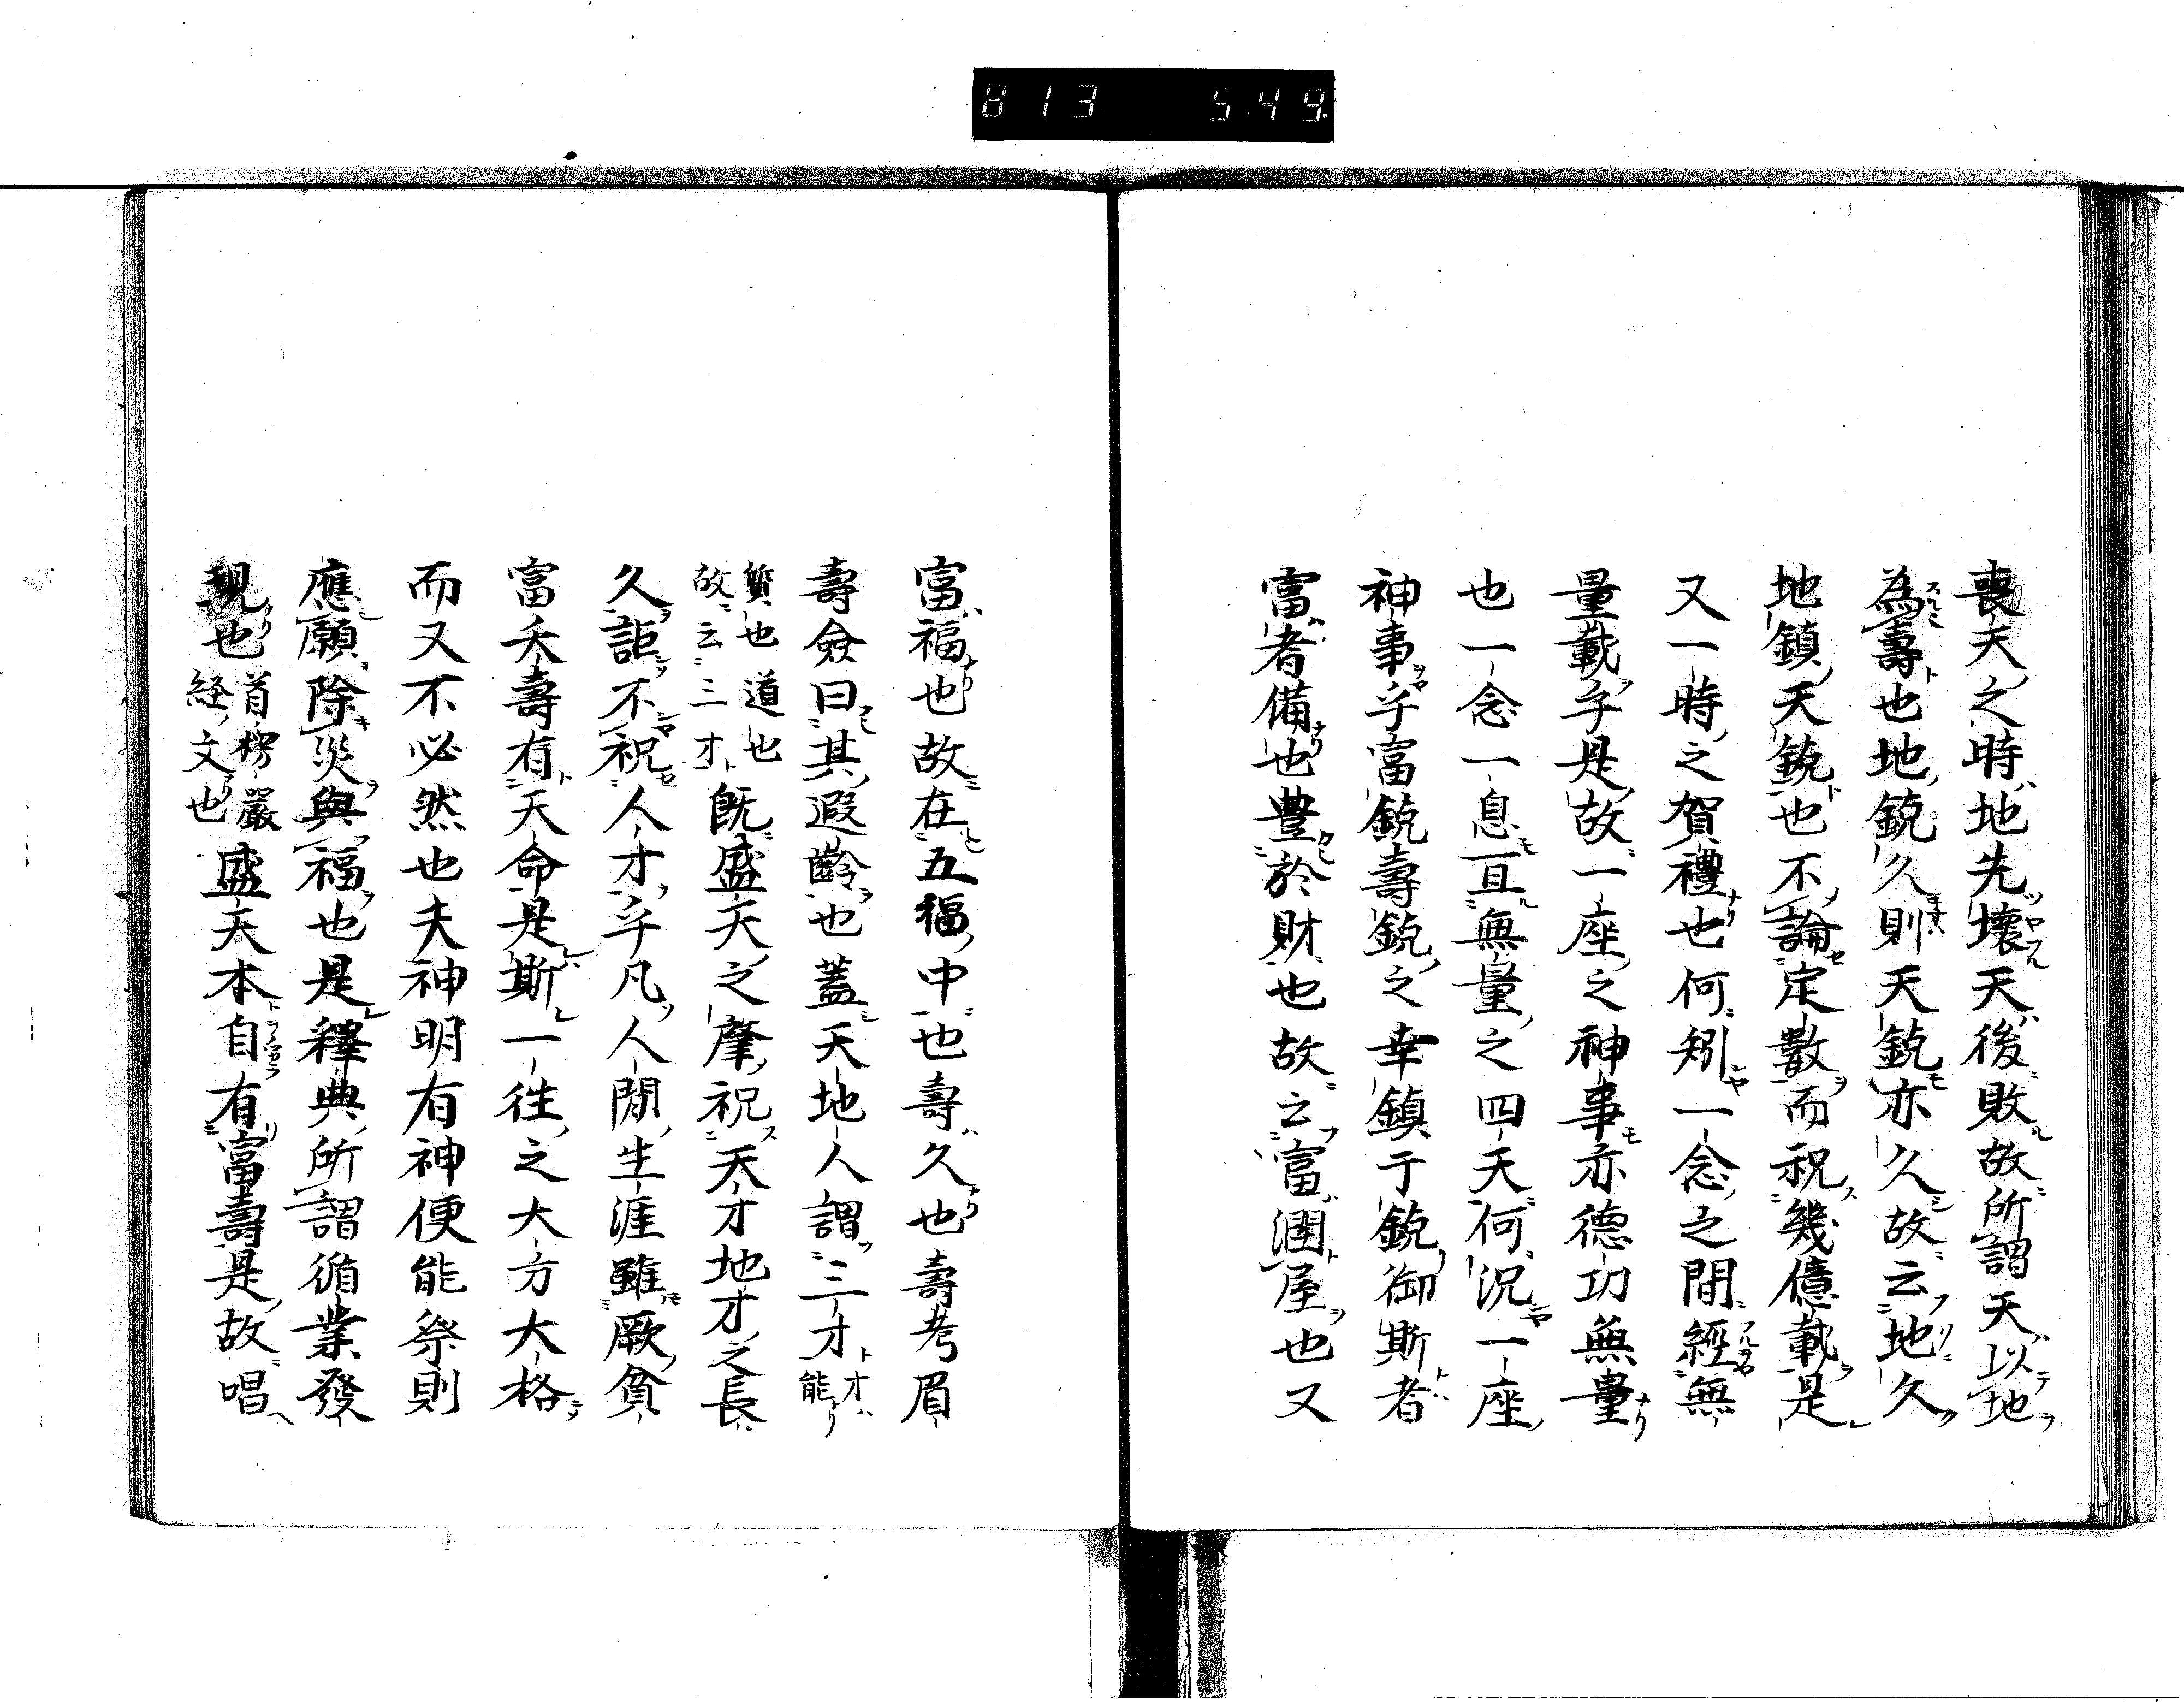 813 549
喪天之時地先壞天後敗故所謂天以地
為壽也地鋭久則天鋭亦久故云地久
地鎮天鋭也不論定數而祝幾億載是
又一時之賀禮也何矧一念之間經無
量載乎是故一座之神事亦德功無量
也一念一息亘無量之四天何況一座
神事乎富鋭壽鋭之幸鎮于鋭御斯者
富者備也豊於財也故云富潤屋也又
富福也故在五福中也壽久也壽考眉
壽僉曰其遐齡也蓋天地人謂三才才能
質也道也故云三才既盛天之肇祝天才地才之長
久詎不祝人才乎凡人間生涯雖厥貧
富夭壽有天命是斯一徃之大方大格
而又不必然也夫神明有神便能祭則
應願除災與福也是釋典所謂循業發
現也首楞嚴経文也盛天本自有富壽是故唱